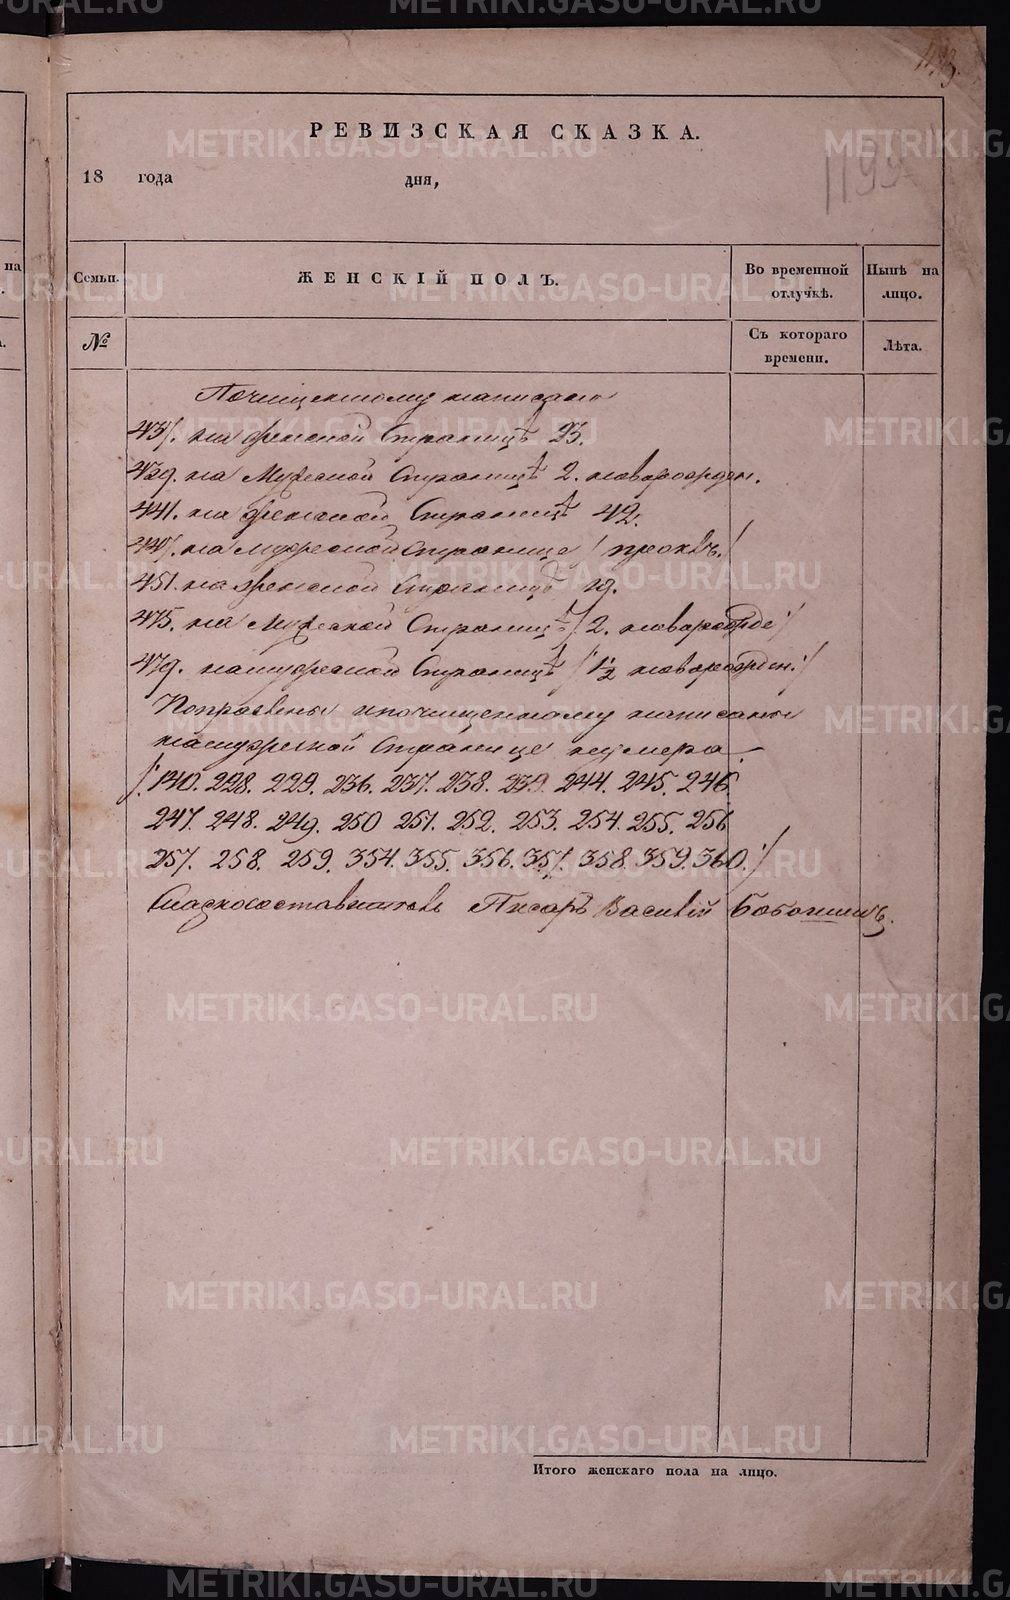 РЕВИЗСКАЯ СКАЗКА.
18 года дня,
1199
на Семьи. ЖЕНСКІЙ ПОЛЪ. Во временной отлучкѣ. Нынѣ на лицо.
№ Съ котораго времени. Лѣта.
Почищенному написано
437. на женской Страницѣ 23.
439. на Мужеской Страницѣ 2. новарожден.
441. на женской Страницѣ 42.
447. на мужеской странице
451. на женской Страницѣ 19.
475. на Мужеской Страницѣ /2. новарожде/
479. на мужеской Страницѣ /: 1½ новарожден:/
Поправлены и почищенному написаны
на мужеской странице нумера
/: 140. 228. 229. 236. 237. 238. 239. 244. 245. 246.
247. 248. 249. 250 251. 252. 253. 254. 255. 256
257. 258. 259. 354. 355. 356. 357. 358. 359. 360. :/
Сказкосоставитель Писарь Василий
Итого женскаго пола на лицо.
METRIKI.GASO-URAL.RU